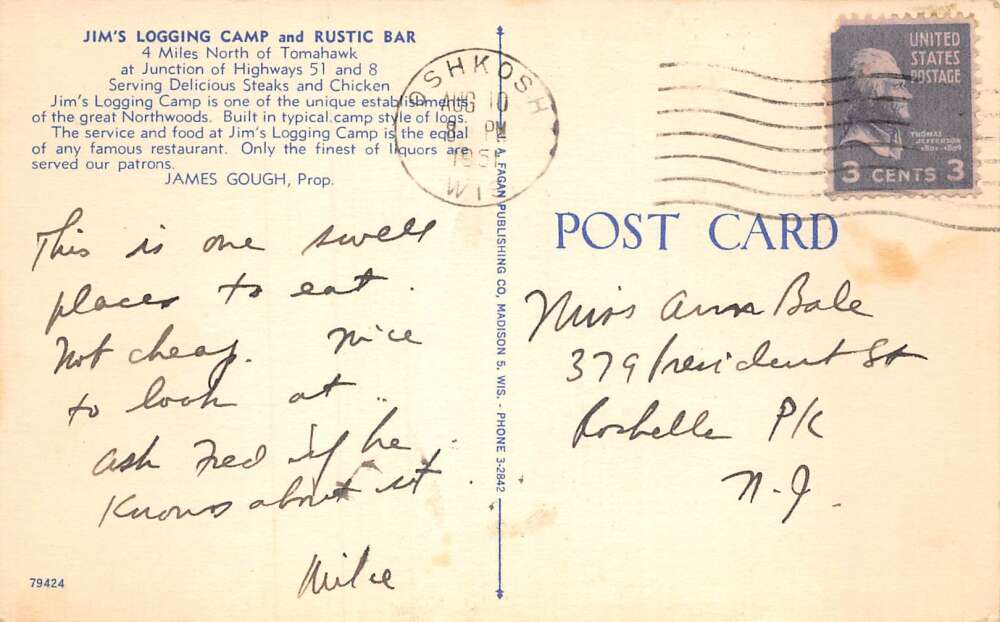 JIM'S LOGGING CAMP and RUSTIC BAR
4 Miles North of Tomahawk
at Junction of Highways 51 and 8
Serving Delicious Steaks and Chicken
Jim's Logging Camp is one of the unique establishments
of the great Northwoods. Built in typical camp style of logs.
The service and food at Jim's Logging Camp is the equal
of any famous restaurant. Only the finest of liquors are
served our patrons.
JAMES GOUGH, Prop.
This is one swell
places to eat.
Not cheap. Nice
to look at.
ask Fred if he
Knows about it.
Mike
79424
A. FAGAN PUBLISHING CO, MADISON 5, WIS. - PHONE 3-2842
OSHKOSH
AUG 10
PM
WIS
UNITED
STATES
POSTAGE
THOMAS
JEFFERSON
1801-1809
3 CENTS 3
POST CARD
Miss Ann Bale
379 President St
Rochelle Pk
N.J.